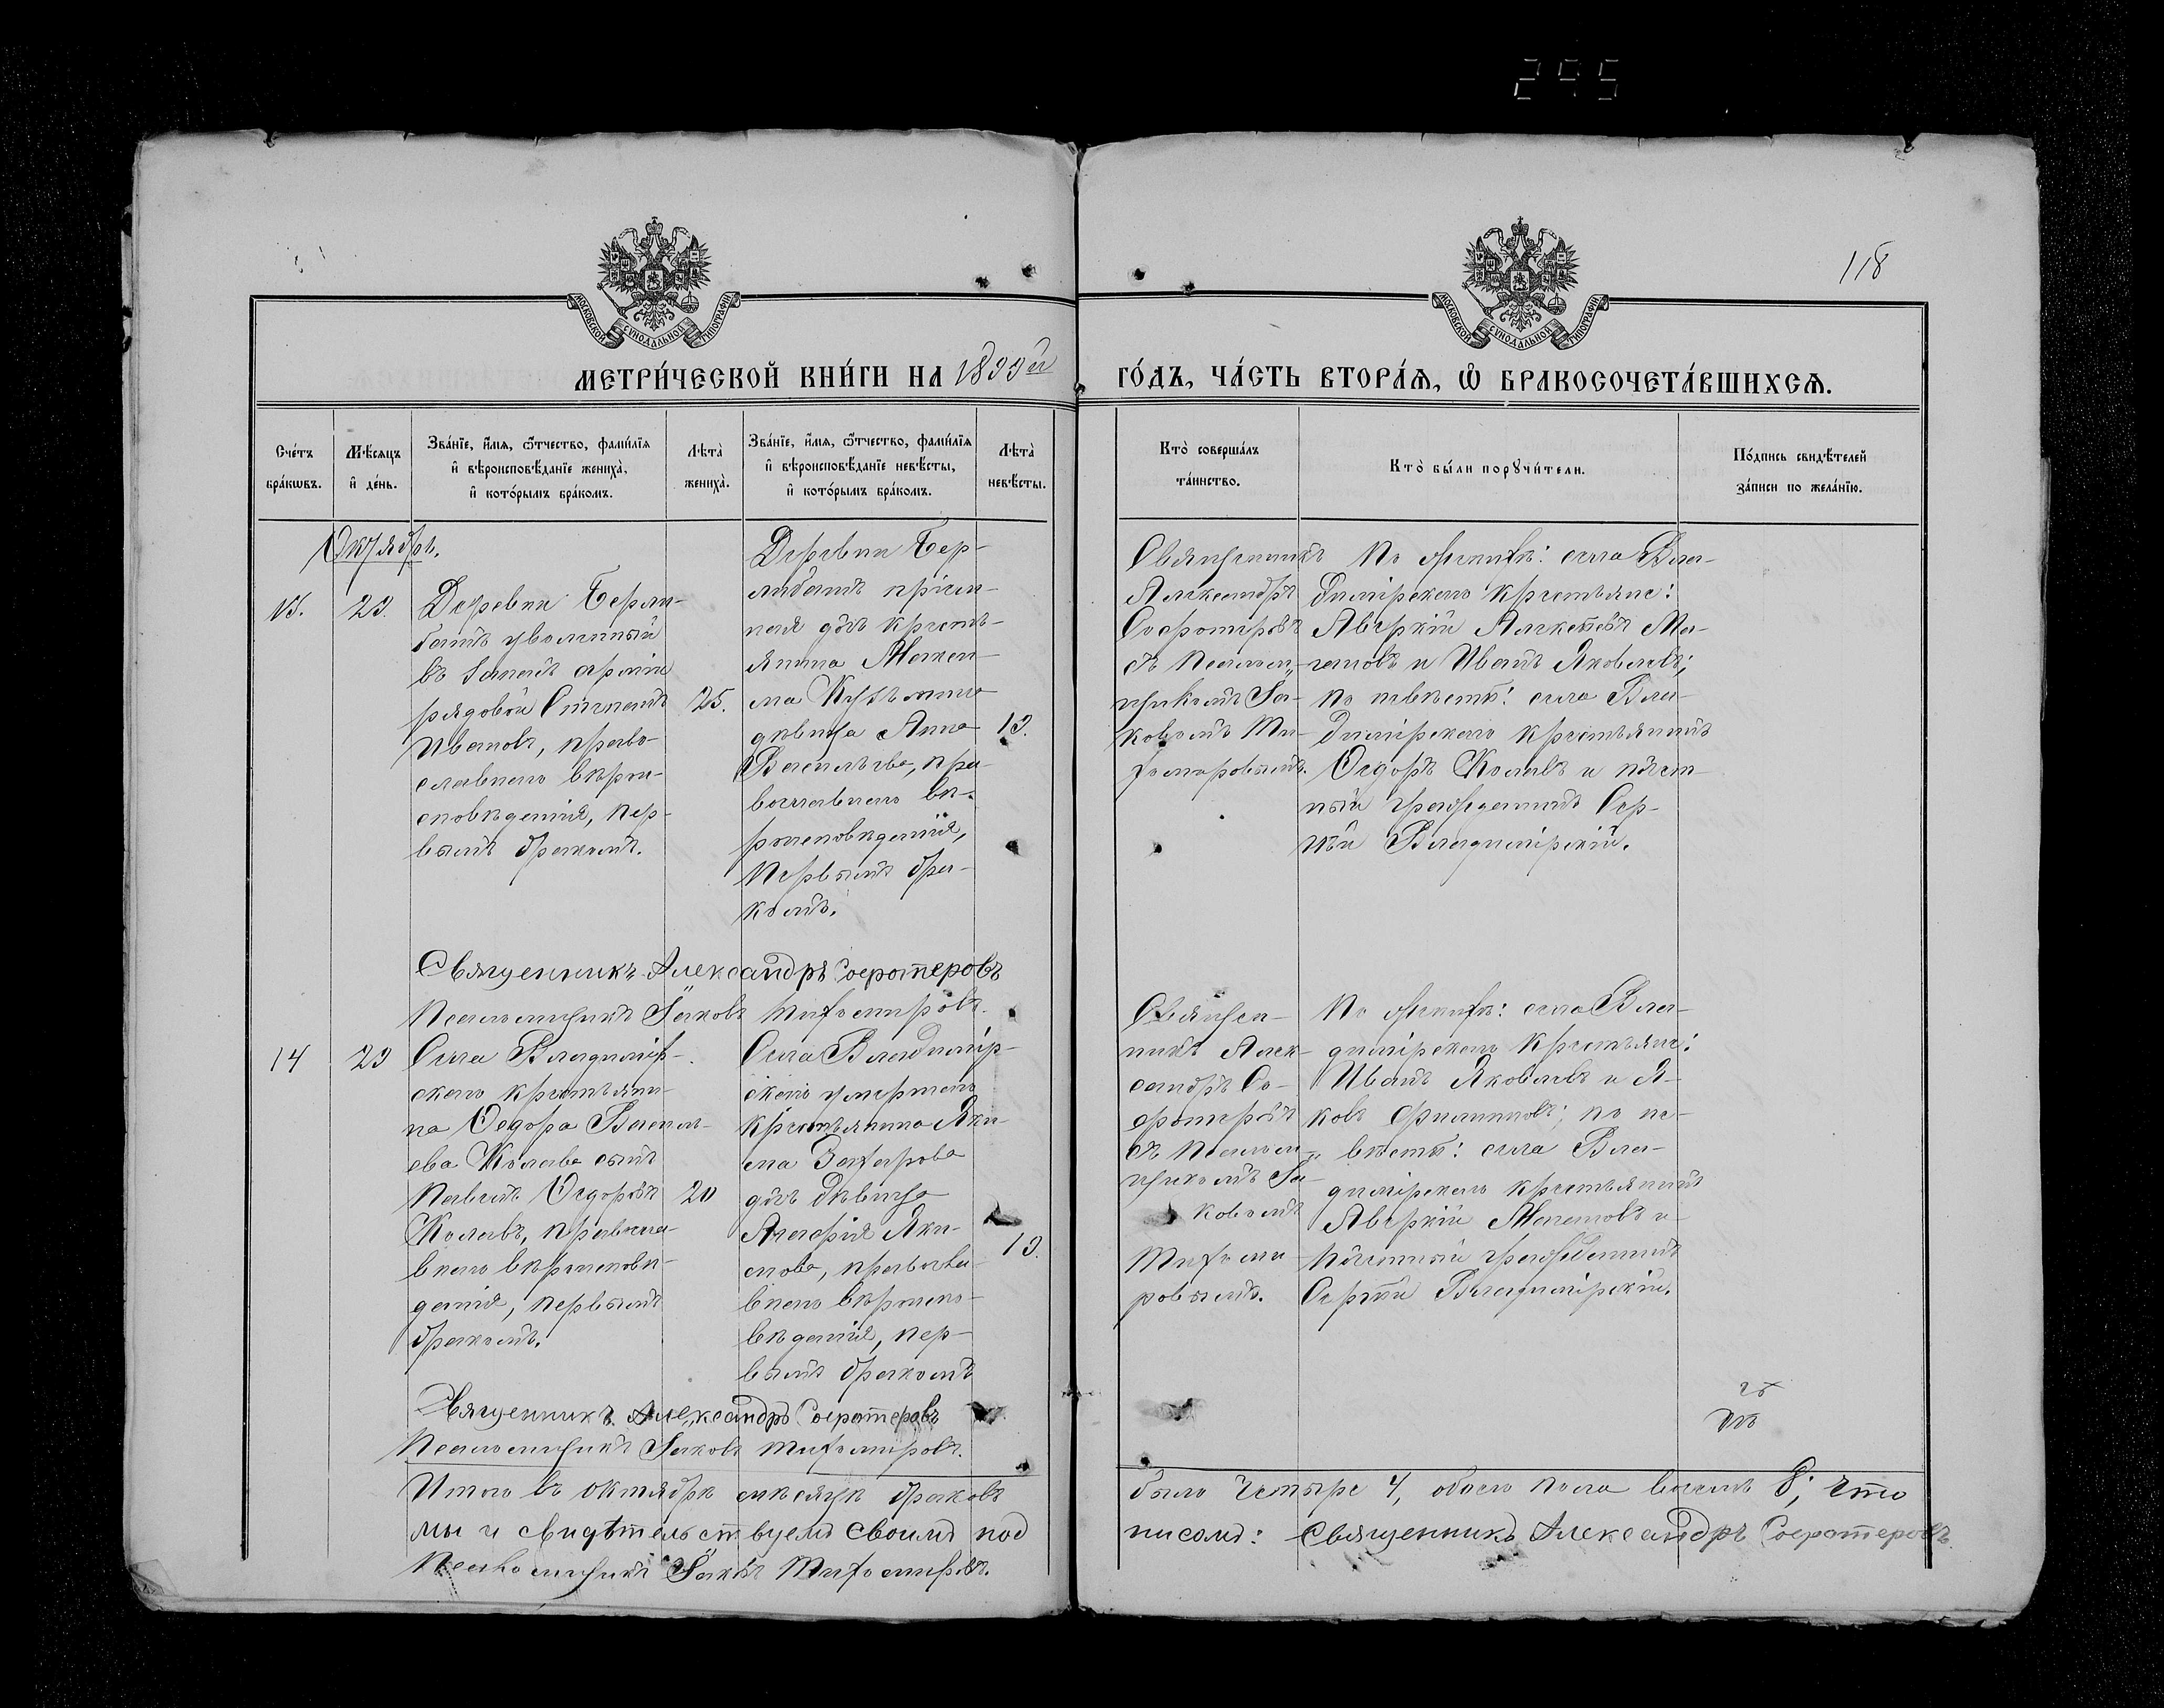 295
118
МОСКОВСКОЙ СУНОДАЛЬНОЙ ТИПОГРАФІИ
МОСКОВСКОЙ СУНОДАЛЬНОЙ ТИПОГРАФІИ
МЕТРИ́ЧЕСКОЙ КНИ́ГИ НА 1899й ГО́ДЪ, ЧА́СТЬ ВТОРА́Ѧ, Ѽ БРАКОСОЧЕТА́ВШИХСѦ.
Сче́тъ бра́кѡвъ.
Мѣ́сяцъ и҆ де́нь.
Зва́нїе, и҆́мѧ, ѻ҆́тчество, фами́лїѧ
и҆ вѣроисповѣ́данїе жениха̀,
и҆ кото́рымъ бра́комъ.
Лѣ́та̀ жениха̀.
Зва́нїе, и҆́мѧ, ѻ҆́тчество, фами́лїѧ
и҆ вѣроисповѣ́данїе невѣ́сты,
и҆ кото́рымъ бра́комъ.
Лѣ́та̀ невѣ́сты.
Кто̀ соверша́лъ
та́инство.
Кто̀ бы́ли порꙋчи́тели.
По́дпись свидѣ́телей
за́писи по жела́нїю.
Октябрь.
23.
Деревни Берли-
баш уволенный
въ запасъ арміи
рядовой Степанъ
Ивановъ, право-
славнаго вѣрои-
сповѣданія, пер-
вымъ бракомъ.
25.
Деревни Бер-
либашъ
дочь кресть-
янина Макси-
ма Кузьмина
дѣвица Анна
Васильева, пра-
вославнаго вѣ-
роисповѣданія,
первымъ бра-
комъ.
19.
Священникъ
Александръ
Соеротеровъ
съ псалом-
щикомъ Іа-
ковомъ Ти-
хомировымъ.
По женихѣ: села Вла-
димірскаго крестьяне:
Аверкій Алексѣевъ Ма-
и Иванъ Яковлевъ;
по невѣстѣ: села Вла-
димірскаго крестьянинъ
Ѳедоръ Колавъ и почет-
ный гражданинъ Сер-
гѣй Владимірскій.
Священникъ Александръ Соеротеровъ
Псаломщикъ Іаковъ Тихомировъ.
14
23
Села Владимір-
скаго крестьяни-
на Ѳедора Василь-
ева Колава сынъ
Павелъ Ѳедоровъ
Колавъ, правосла-
внаго вѣроисповѣ-
данія, первымъ
бракомъ.
20
Села Владимір-
скаго умершаго
крестьянина Яки-
ма Захарова
дочь дѣвица
Агафія Яки-
мова, правосла-
внаго вѣроиспо-
вѣданія, пер-
вымъ бракомъ
19.
Священ-
никъ Алек-
сандръ Со-
еротеровъ
съ псалом-
щикомъ Іа-
ковомъ
Тихоми-
ровымъ.
По женихѣ: села Вла-
димірскаго крестьяне:
Иванъ Яковлевъ и Я-
ковъ Филиповъ; по не-
вѣстѣ: села Вла-
димірскаго крестьянинъ
Аверкій и
почетный гражданинъ
Сергѣй Владимірскій.
Священникъ Александръ Соеротеровъ
Псаломщикъ Іаковъ Тихомировъ.
Итого въ октябрѣ мѣсяцѣ браковъ было четыре 4, обоего пола восемь 8; что
мы и свидѣтельствуемъ своимъ подписомъ: Священникъ Александръ Соеротеровъ
Псаломщикъ Іаковъ Тихомировъ.